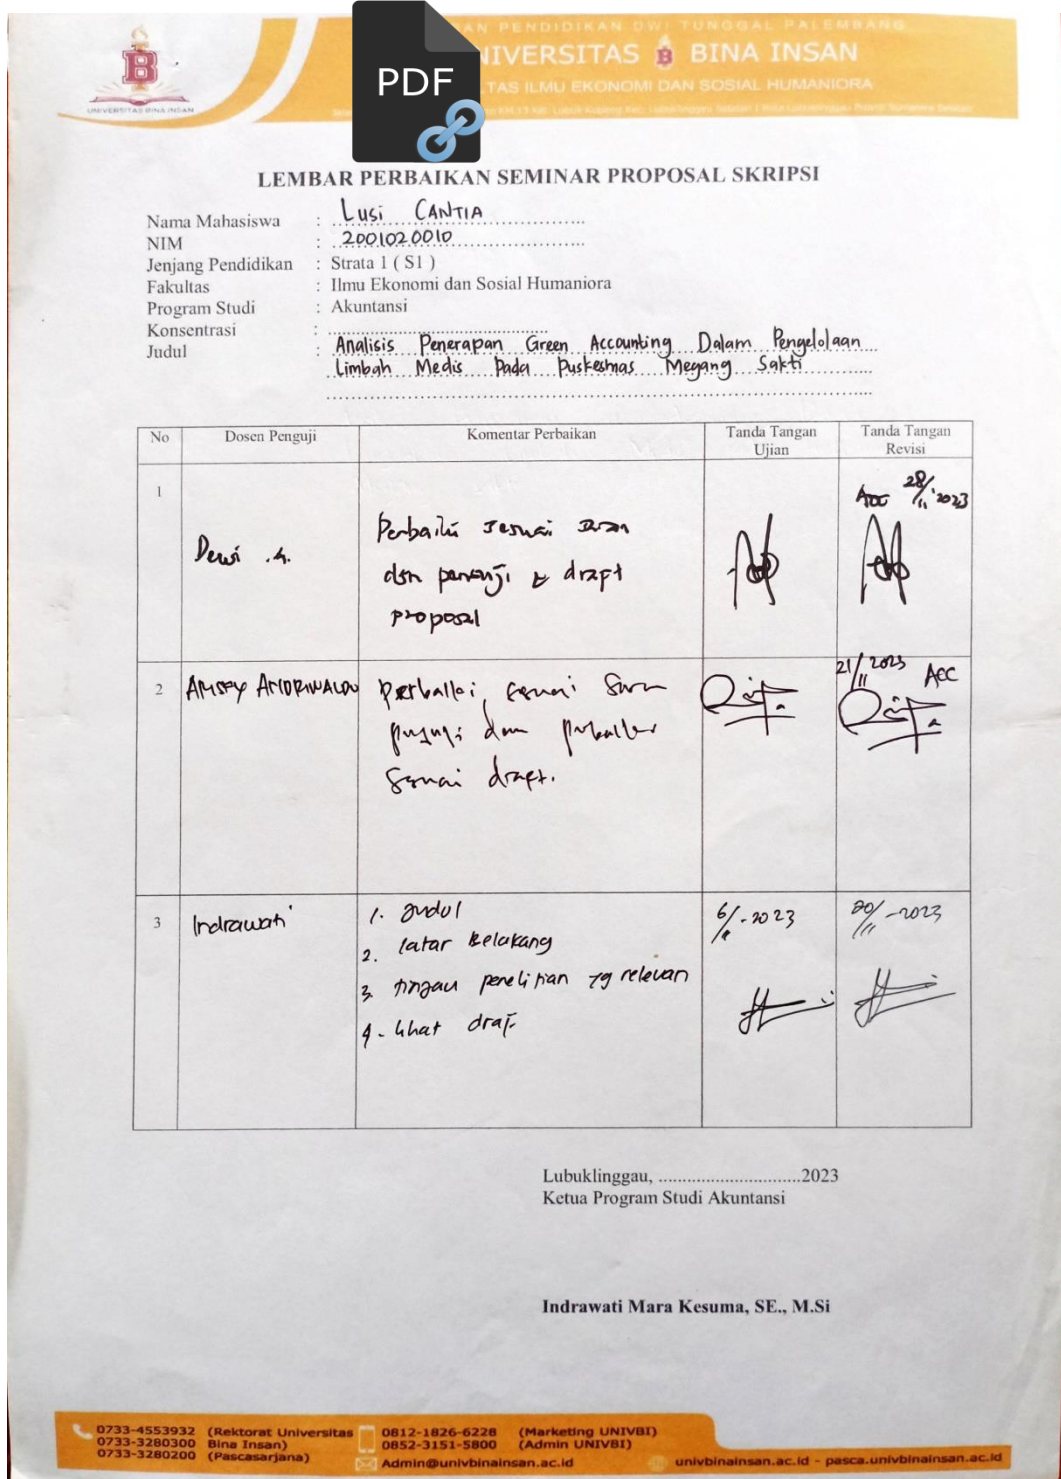 PDF
AN PENDIDIKAN DWI TUNGGAL PALEMBANG
NIVERSITAS BINA INSAN
TAS ILMU EKONOMI DAN SOSIAL HUMANIORA
UNIVERSITAS BINA INSAN
LEMBAR PERBAIKAN SEMINAR PROPOSAL SKRIPSI
Nama Mahasiswa : Lusi CANTIA
NIM : 2001020010
Jenjang Pendidikan : Strata 1 ( S1 )
Fakultas : Ilmu Ekonomi dan Sosial Humaniora
Program Studi : Akuntansi
Konsentrasi :
Judul : Analisis Penerapan Green Accounting Dalam Pengelolaan
Limbah Medis Pada Puskesmas Megang Sakti
No Dosen Penguji Komentar Perbaikan Tanda Tangan Ujian Tanda Tangan Revisi
1
Acc 28/11 2023
Dewi .A.
Perbaiki sesuai
dsn draft
proposal
2
21/11 2023 ACC
sesuai
dan
sesuai draft.
3 Indrawati
1. Judul
6/11-2023
20/11-2023
2. latar Belakang
3. tinjau penelitian yg relevan
4. lihat draf
Lubuklinggau, ..............................2023
Ketua Program Studi Akuntansi
Indrawati Mara Kesuma, SE., M.Si
0733-4553932 (Rektorat Universitas
0733-3280300 Bina Insan)
0733-3280200 (Pascasarjana)
0812-1826-6228 (Marketing UNIVBI)
0852-3151-5800 (Admin UNIVBI)
Admin@univbinainsan.ac.id
univbinainsan.ac.id - pasca.univbinainsan.ac.id